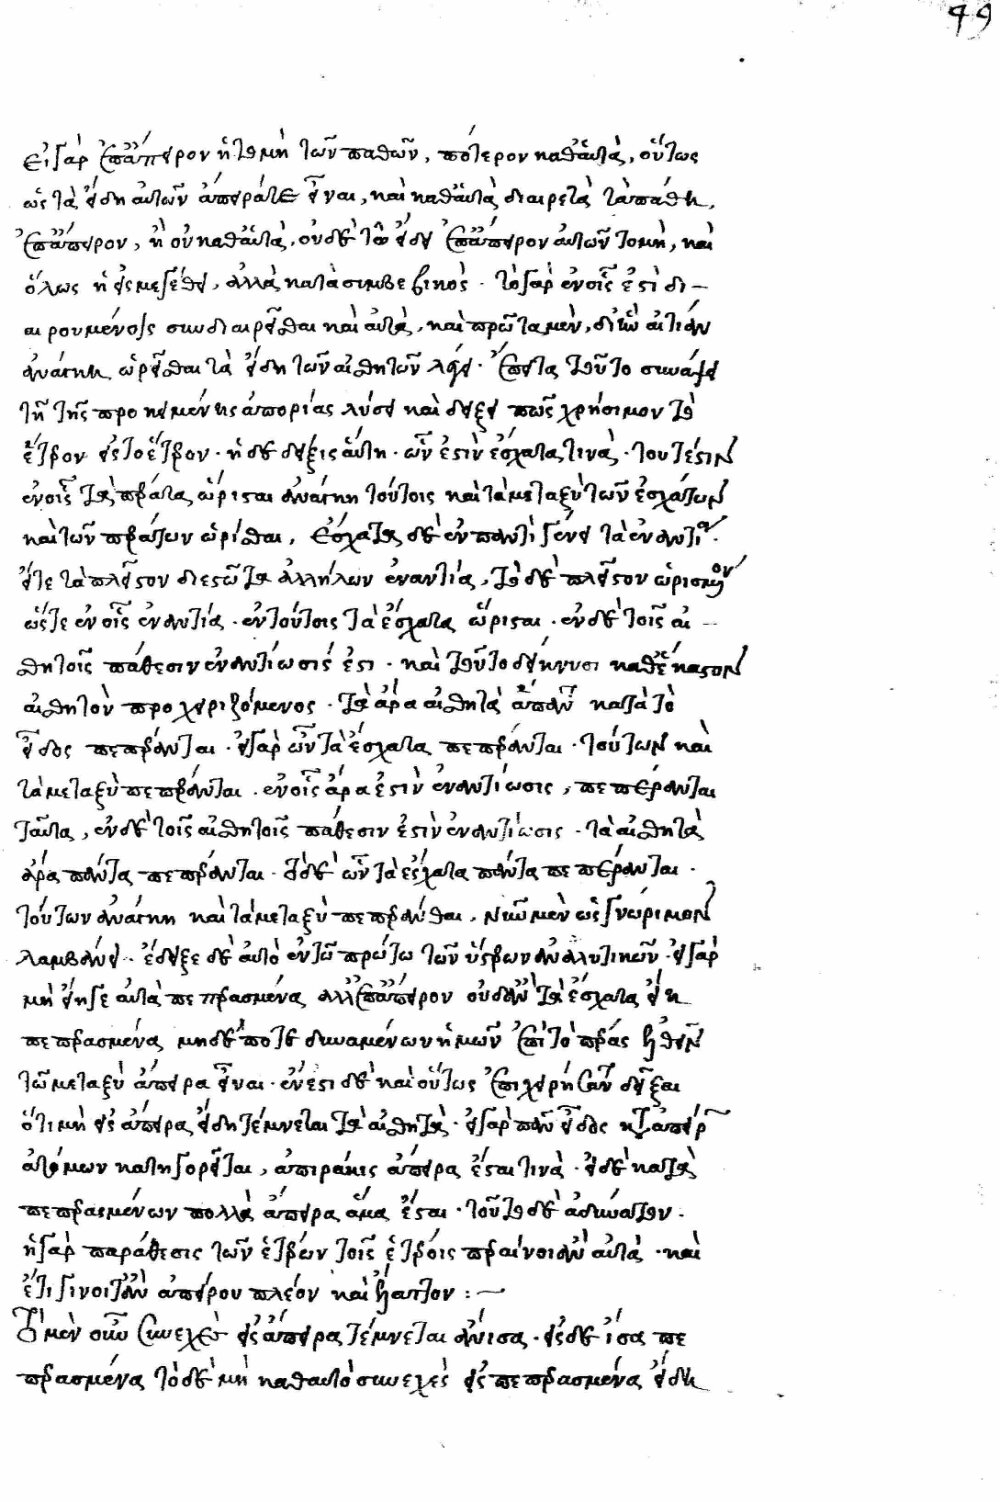 49
εἰ γὰρ ἐπάπειρον ἡ τομὴ τῶν παθῶν, πότερον καθ' αὑτὰ, οὕτως
ὡς τὰ εἴδη αὐτῶν ἄπειρά τε εἶναι, καὶ καθ' αὑτὰ διαιρετὰ τὰ πάθη,
ἐπάπειρον, ἢ οὐ καθ' αὑτὰ, οὐδὲ τῷ εἴδει ἐπάπειρον αὐτῶν τομὴ, καὶ
ὅλως ἡ εἰς μεγέθει, ἀλλὰ κατὰ συμβεβηκός. τὸ γὰρ ἐν οἷς ἐστὶ δι
αιρουμένοις συνδιαιρεῖσθαι καὶ αὐτὰ, καὶ πρῶτα μὲν, δι' ἣν αἰτίαν
ἀνάγκη ὡρίσθαι τὰ εἴδη τῶν αἰσθητῶν λέγει. ἔπειτα τοῦτο συνάψει
τῇ τῆς προκειμένης ἀπορίας λύσει καὶ δείξει πῶς χρήσιμον τὸ
ἕτερον εἰς τὸ ἕτερον. ἡ δὲ δεῖξις αὕτη. ὧν ἐστὶν ἔσχατα τινὰ, τουτέστιν
ἐν οἷς τὰ πέρατα ὥρισται ἀνάγκη τούτοις καὶ τὰ μεταξὺ τῶν ἐσχάτων
καὶ τῶν περάτων ὡρίσθαι, ἔσχατα δὲ ἐν παντὶ γένει τὰ ἐναντία.
εἴγε τὰ πλεῖστον διεστῶτα ἀλλήλων ἐναντία, τὸ δὲ πλεῖστον ὡρισμένον
ὥστε ἐν οἷς ἐναντία. ἐν τούτοις τὰ ἔσχατα ὥρισται. ἐν δὲ τοῖς αἰ
σθητοῖς πάθεσιν ἐναντίωσίς ἐστι. καὶ τοῦτο δείκνυσι καθ' ἕκαστον
αἰσθητὸν προχειριζόμενος. τὰ ἄρα αἰσθητὰ ἅπαν κατὰ τὸ
εἶδος πεπέρανται. εἰ γὰρ ὧν τὰ ἔσχατα πεπέρανται. τούτων καὶ
τὰ μεταξὺ πεπέρανται. ἐν οἷς ἄρα ἐστὶν ἐναντίωσις, πεπέρανται
ταῦτα, ἐν δὲ τοῖς αἰσθητοῖς πάθεσιν ἐστὶν ἐναντίωσις. τὰ αἰσθητὰ
ἄρα πάντα πεπέρανται. ὅτι δὲ ὧν τὰ ἔσχατα πάντα πεπέρανται.
τούτων ἀνάγκη καὶ τὰ μεταξὺ πεπεράνθαι, νῦν μὲν ὡς γνώριμον
λαμβάνει. ἔδειξε δὲ αὐτὸ ἐν τῷ πρώτῳ τῶν ὑστέρων ἀναλυτικῶν. εἰ γὰρ
μὴ εἴη γε αὐτὰ πεπερασμένα ἀλλ' ἐπάπειρον οὐδ' ἂν τὰ ἔσχατα εἴη
πεπερασμένα μηδέποτε δυναμένων ἡμῶν ἐπὶ τὸ πέρας ἐλθεῖν
τῷ μεταξὺ ἄπειρα εἶναι. ἔνεστι δὲ καὶ οὕτως ἐπιχειρήσαντα δεῖξαι
ὅτι μὴ εἰς ἄπειρα εἴδη τέμνεται τὰ αἰσθητά. εἰ γὰρ πᾶν εἶδος κατ' ἀπείρων
ἀτόμων κατηγορεῖται, ἀπειράκις ἄπειρα ἔσται τινὰ. εἰ δὲ κατὰ
πεπερασμένων πολλὰ ἄπειρα ἅμα ἔσται. τοῦτο δὲ ἀδύνατον.
ἡ γὰρ παράθεσις τῶν ἑτέρων τοῖς ἑτέροις περαίνοι ἂν αὐτὰ. καὶ
ἔτι γίνοιτ' ἂν ἀπείρου πλέον καὶ ἔλαττον:
Τὸ μὲν οὖν συνεχὲς εἰς ἄπειρα τέμνεται ἄνισα. εἰς δὲ ἴσα πε
περασμένα τὸ δὲ μὴ καθ' αὑτὸ συνεχὲς εἰς πεπερασμένα εἴδη